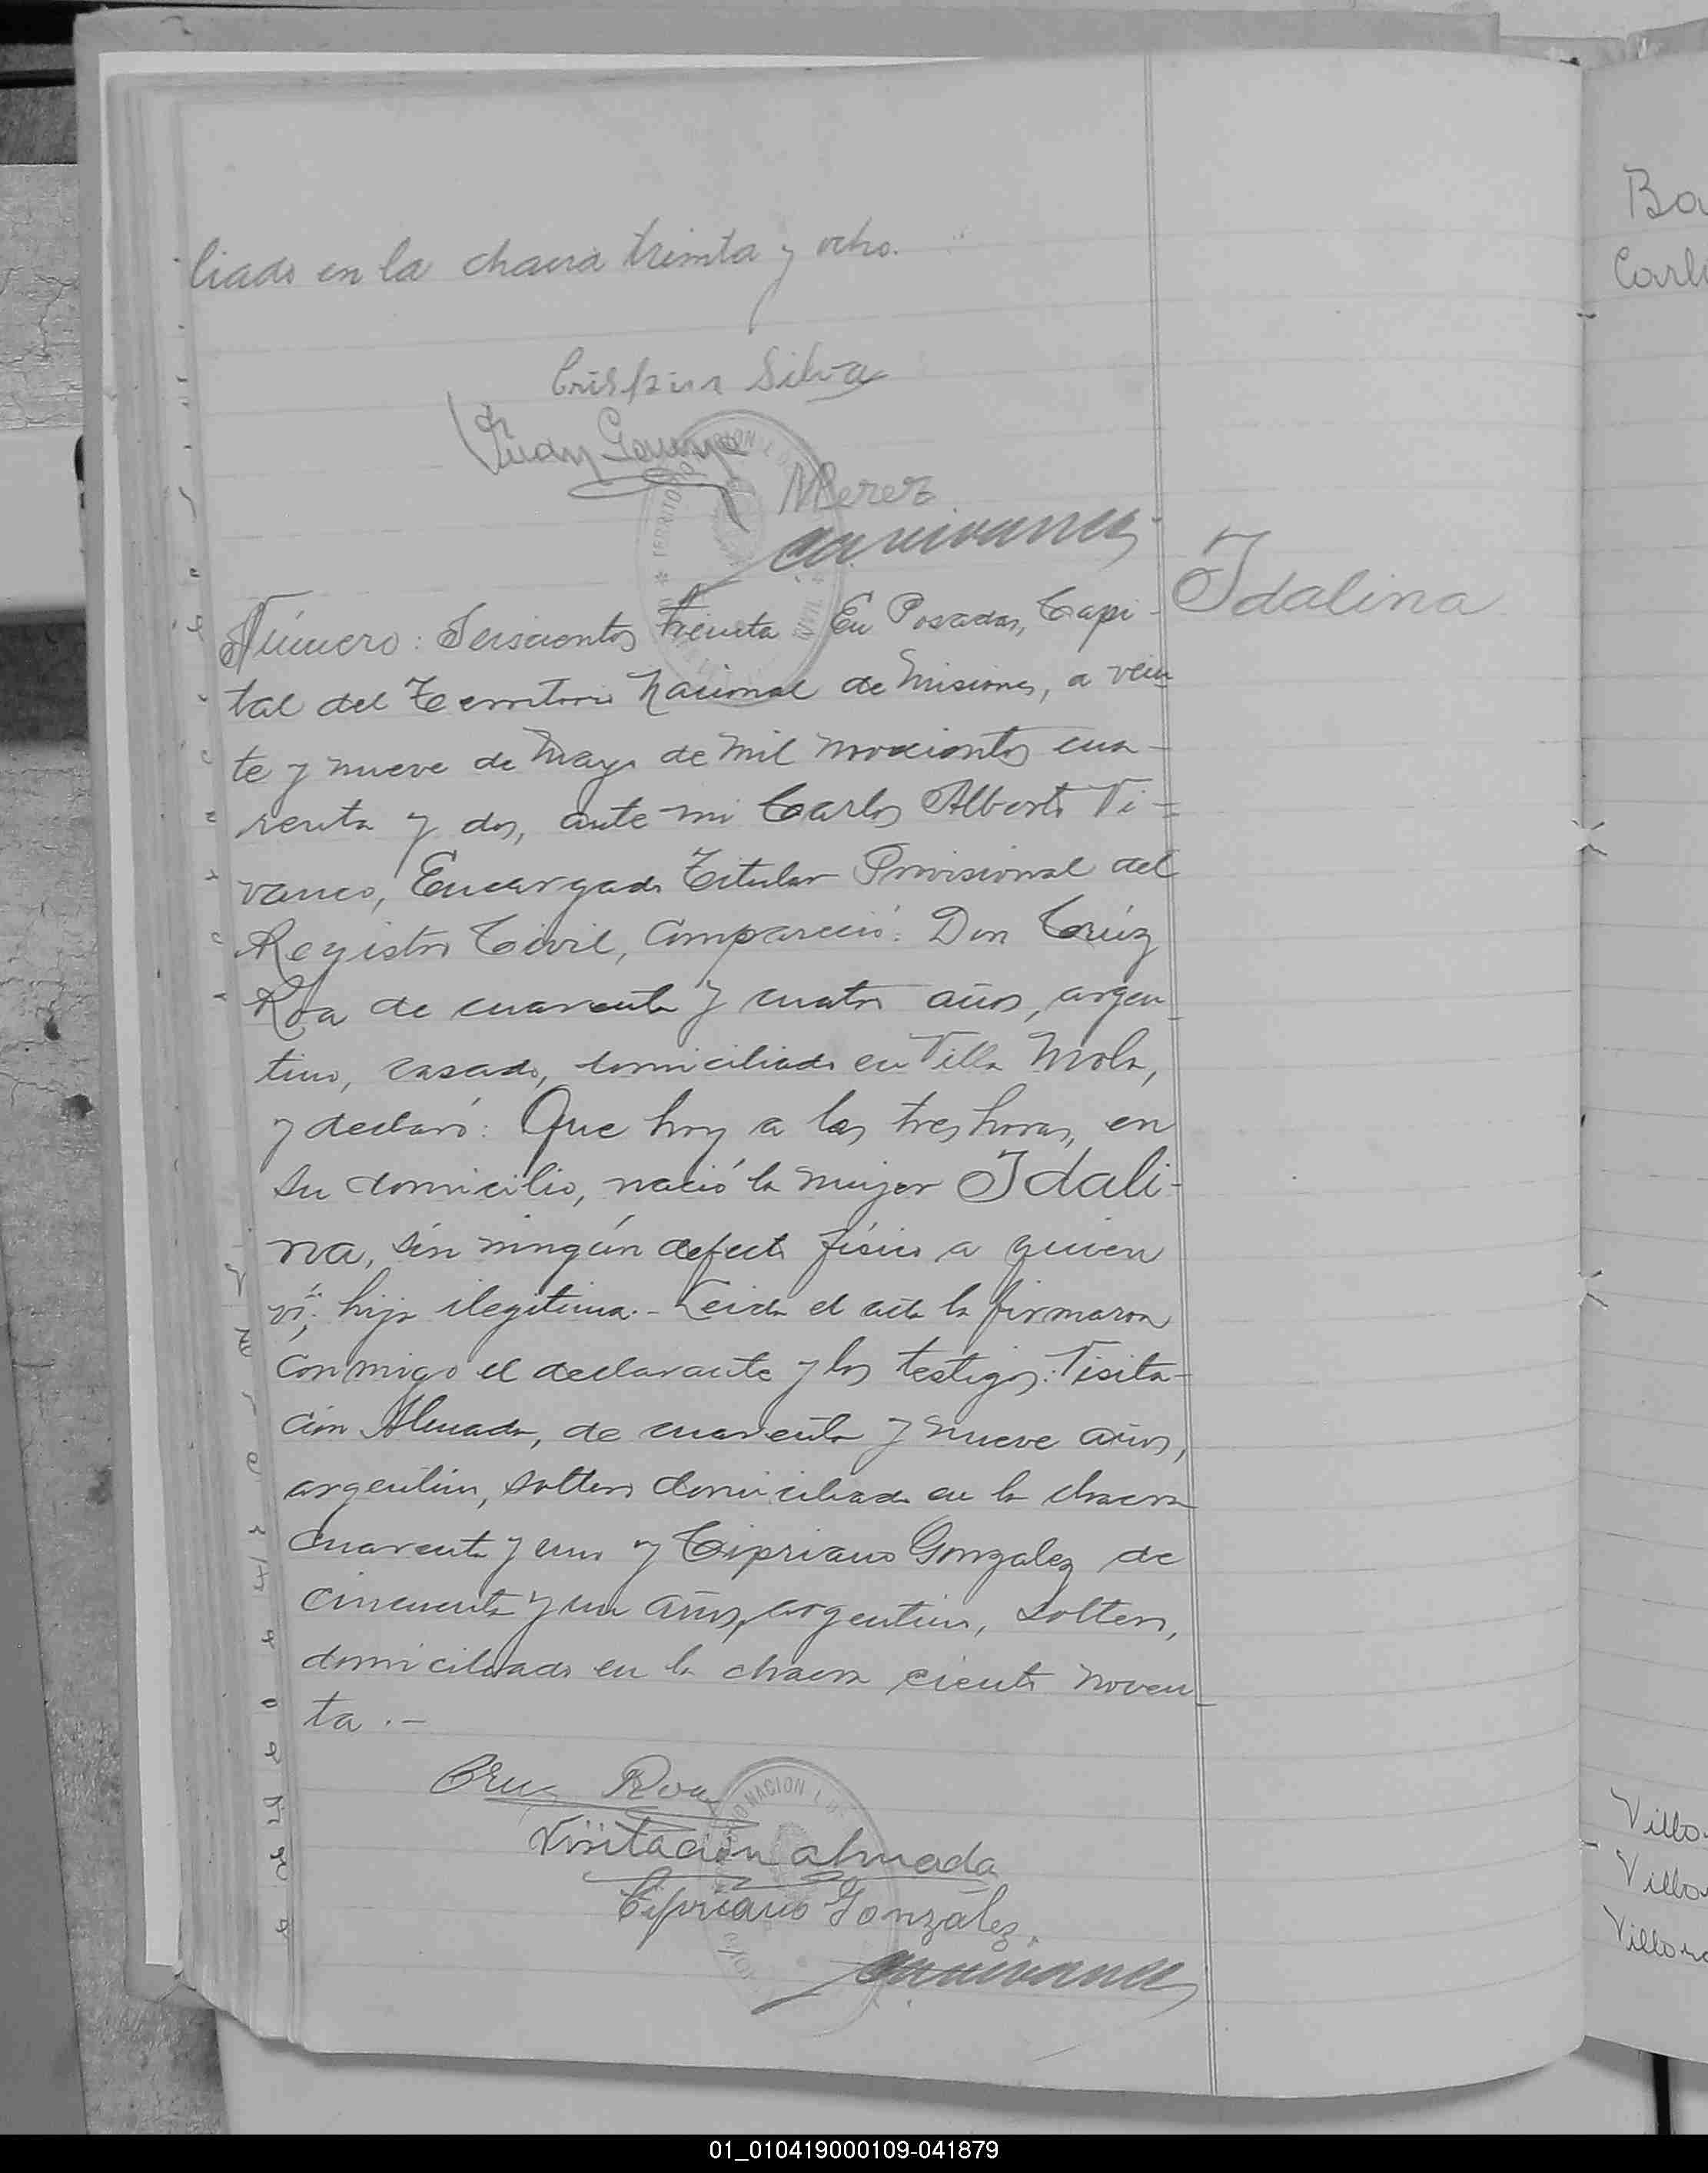 liado en la chacra treinta y ocho.
Crispin Silva
Juan
Perez
Idalina
Número: Seiscientos treinta En Posadas, Capi-
tal del Territorio Nacional de Misiones, a vein-
te y nueve de Mayo de mil novecientos cua-
renta y dos, ante mi Carlos Alberto Vi-
vanco, Encargado Titular Provisional del
Registro Civil, compareció: Don Crúz
Roa de cuarenta y cuatro años, argen-
tino, casado, domiciliado en Villa Mola,
y declaró: Que hoy a las tres horas, en
su domicilio, nació la mujer Idali-
na, sin ningún defecto físico a quien
ví; hija ilegitima.- Leida el acta la firmaron
conmigo el declarante y los testigos: Visita-
ción Almada, de cuarenta y nueve años,
argentino, soltero domiciliado en la chacra
cuarenta y uno y Cipriano Gonzalez de
cincuenta y un años, argentino, soltero,
domiciliado en la chacra ciento noven-
ta.-
Cruz Roa
Visitación almada
Cipriano González.
NACION
Ba
Carl
Villa
Villa
Villa
01_010419000109-041879